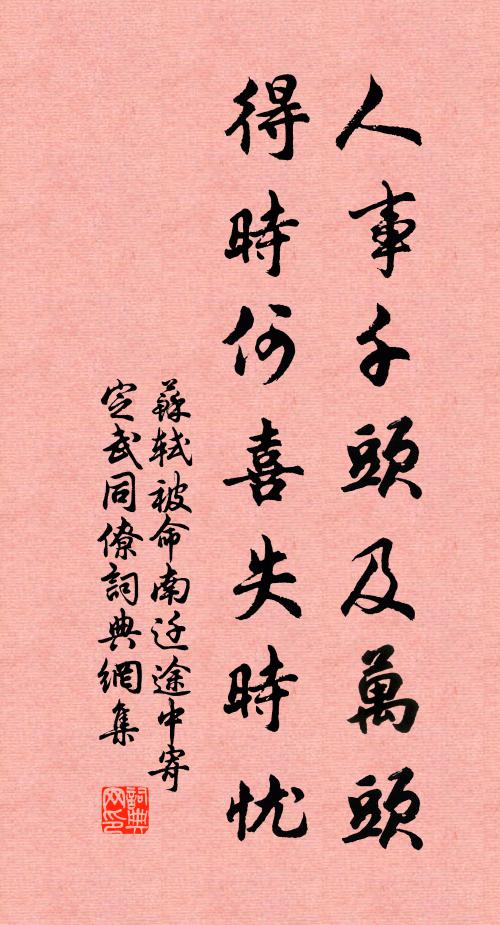 人事千頭及萬頭
得時何喜失時忧
蘇軾被命南迁途中寄
定武同僚詞典網集
詞典网印